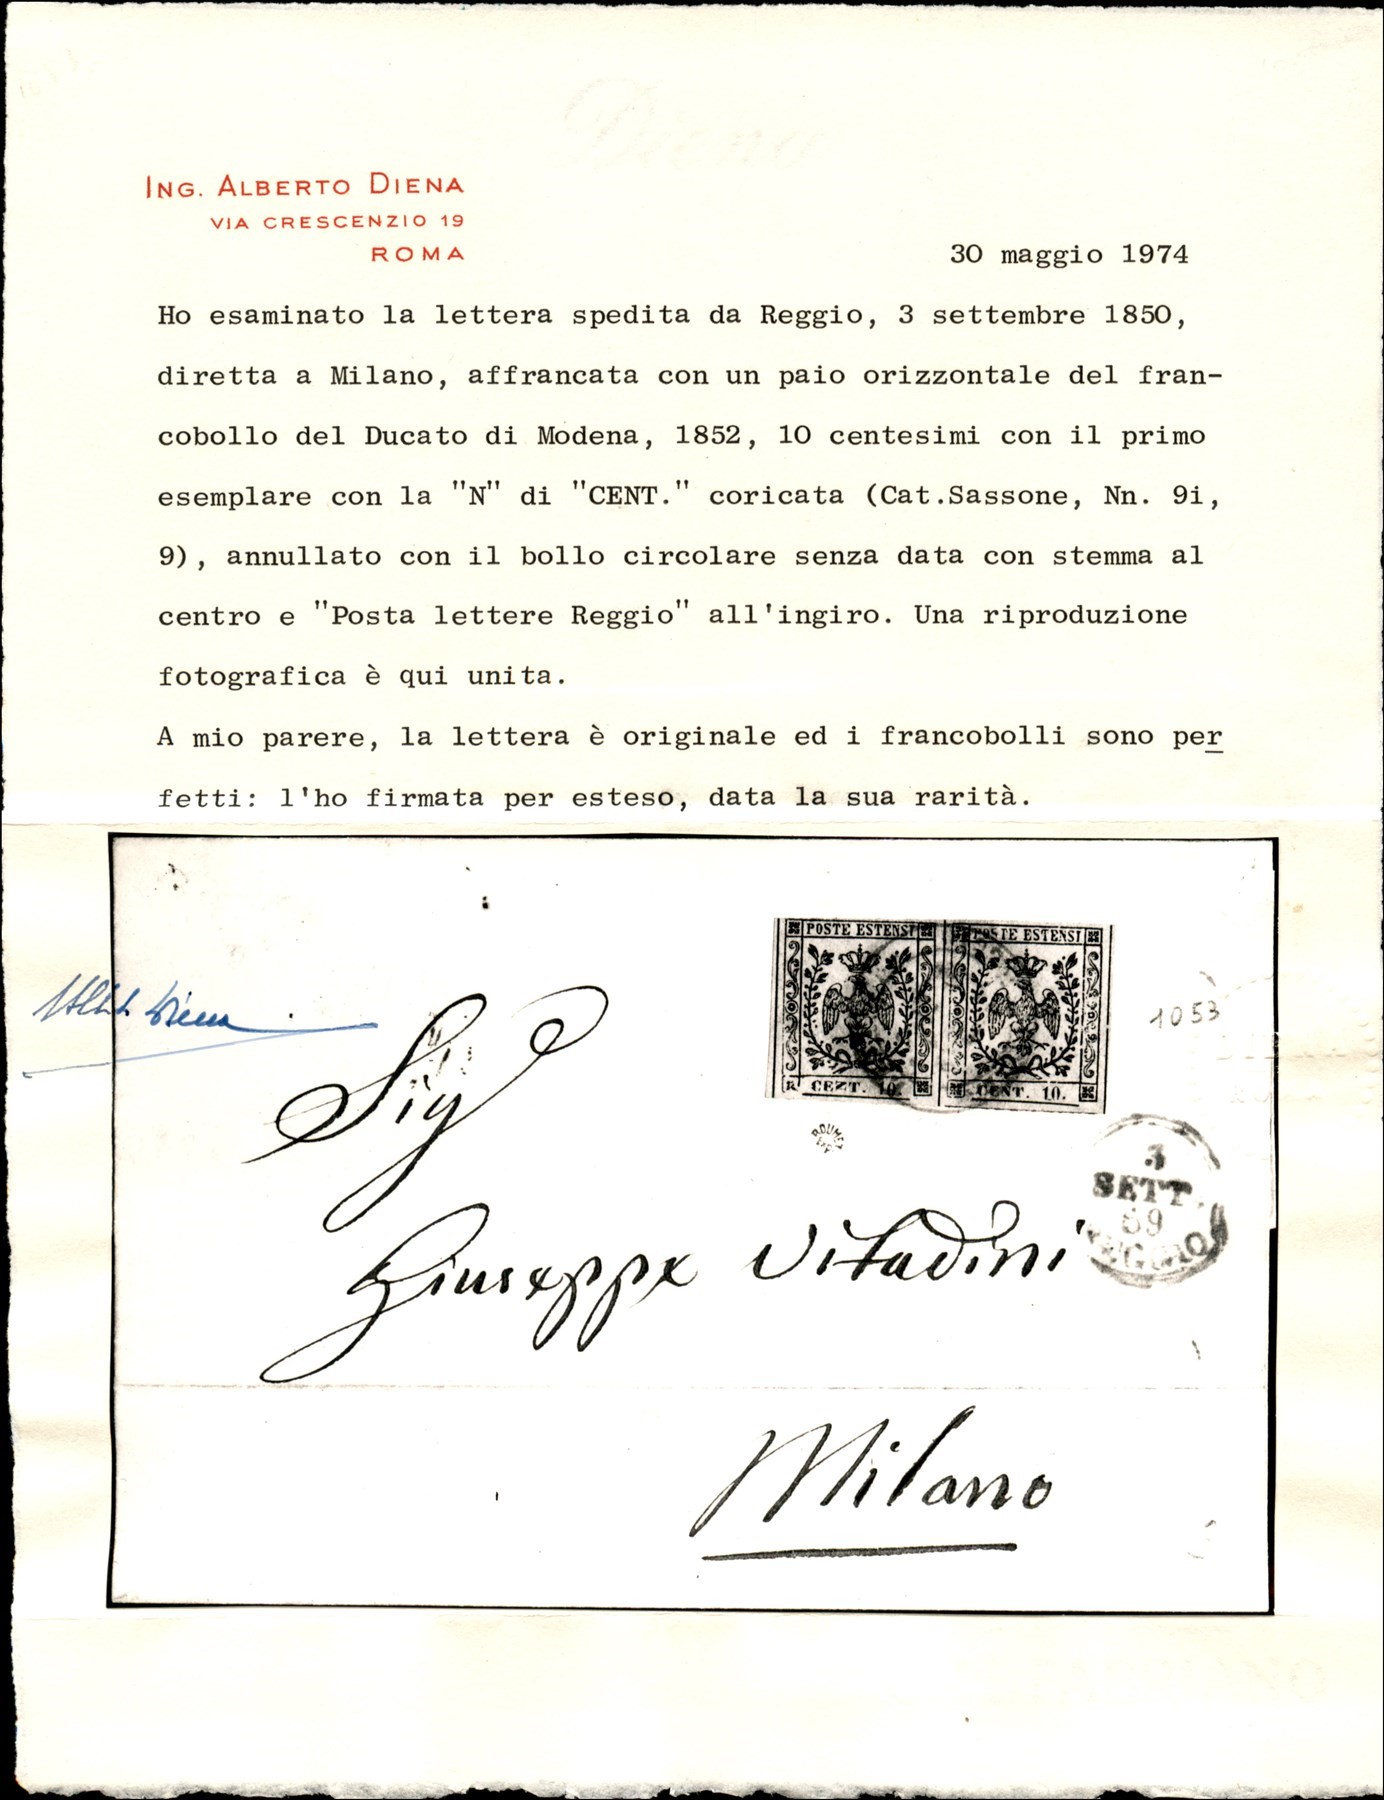 Diena
ING. ALBERTO DIENA
VIA CRESCENZIO 19
ROMA
30 maggio 1974
Ho esaminato la lettera spedita da Reggio, 3 settembre 1850,
diretta a Milano, affrancata con un paio orizzontale del fran-
cobollo del Ducato di Modena, 1852, 10 centesimi con il primo
esemplare con la "N" di "CENT." coricata (Cat.Sassone, Nn. 9i,
9), annullato con il bollo circolare senza data con stemma al
centro e "Posta lettere Reggio" all'ingiro. Una riproduzione
fotografica è qui unita.
A mio parere, la lettera è originale ed i francobolli sono per
fetti: l'ho firmata per esteso, data la sua rarità.
POSTE ESTENSI POSTE ESTENSI
CEZT. 10. CENT. 10.
Diena
1053
Sig
3
SETT.
59
REGGIO
Giuseppe Vitadini
Milano